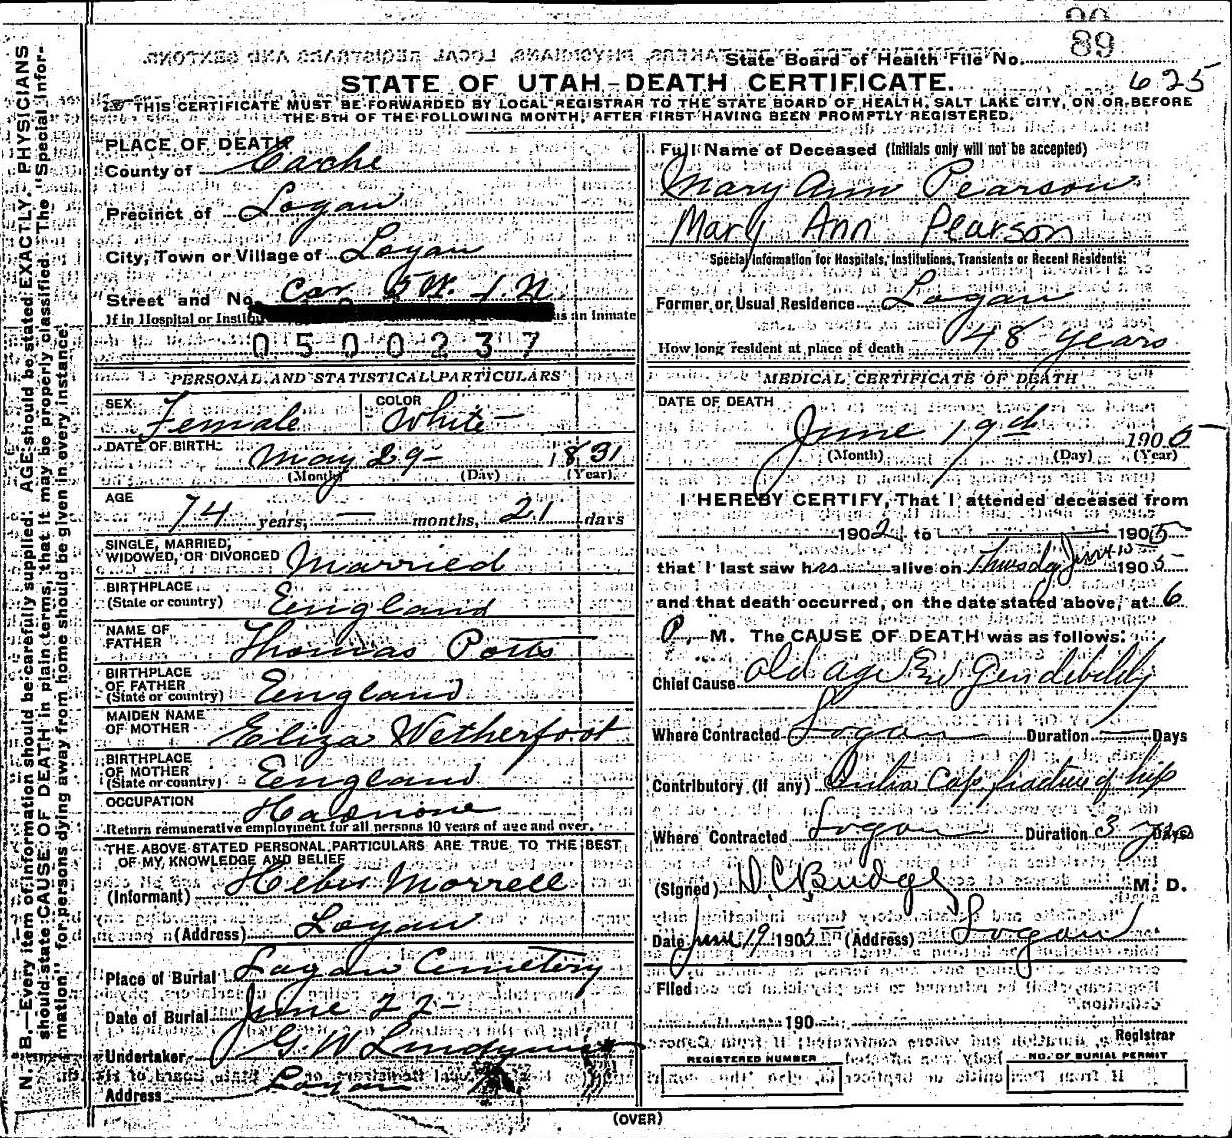 89
State Board of Health File No.
625
STATE OF UTAH-DEATH CERTIFICATE.
THIS CERTIFICATE MUST BE FORWARDED BY LOCAL REGISTRAR TO THE STATE BOARD OF HEALTH, SALT LAKE CITY, ON OR BEFORE
THE 5TH OF THE FOLLOWING MONTH, AFTER FIRST HAVING BEEN PROMPTLY REGISTERED.
N. B.—Every item of information should be carefully supplied. AGE should be stated EXACTLY. PHYSICIANS
should state CAUSE OF DEATH in plain terms, that it may be properly classified. The "Special Infor-
mation" for persons dying away from home should be given in every instance.
PLACE OF DEATH
County of Cache
Precinct of Logan
City, Town or Village of Logan
Street and No. Cor 5 W. 1 N.
If in Hospital or as an inmate
0500237
PERSONAL AND STATISTICAL PARTICULARS
SEX Female COLOR White
DATE OF BIRTH May 29 1831
(Month) (Day) (Year)
AGE 74 years, — months, 21 days
SINGLE, MARRIED,
WIDOWED, OR DIVORCED Married
BIRTHPLACE
(State or country) England
NAME OF
FATHER Thomas Potts
BIRTHPLACE
OF FATHER
(State or country) England
MAIDEN NAME
OF MOTHER Eliza Wetherfoot
BIRTHPLACE
OF MOTHER
(State or country) England
OCCUPATION Has none
Return remunerative employment for all persons 10 years of age and over.
THE ABOVE STATED PERSONAL PARTICULARS ARE TRUE TO THE BEST
OF MY KNOWLEDGE AND BELIEF
(Informant) Heber Morrell
(Address) Logan
Place of Burial Logan Cemetery
Date of Burial June 22
Undertaker G. W. Lindquist
Address Logan
Full Name of Deceased (Initials only will not be accepted)
Mary Ann Pearson
Mary Ann Pearson
Special Information for Hospitals, Institutions, Transients or Recent Residents:
Former or Usual Residence Logan
How long resident at place of death 48 years
MEDICAL CERTIFICATE OF DEATH
DATE OF DEATH
June 19th 1905
(Month) (Day) (Year)
I HEREBY CERTIFY, That I attended deceased from
1902 to 1905
that I last saw her alive on Thursdy June 15 1905
and that death occurred, on the date stated above, at 6
P. M. The CAUSE OF DEATH was as follows:
Chief Cause old age Gen debility
Where Contracted Logan Duration — Days
Contributory (if any) Intra Cap fracture of hip
Where Contracted Logan Duration 3 yrs Days
(Signed) D. C. Budge M. D.
Date June 19 1905 (Address) Logan
Filed
190
Registrar
REGISTERED NUMBER
NO. OF BURIAL PERMIT
(OVER)